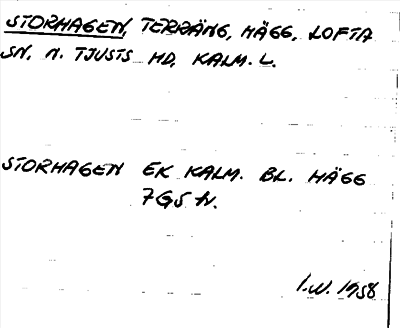 STORHAGEN, TERRÄNG, HÄGG, LOFTA
SN. N. TJUSTS HD, KALM. L.
STORHAGEN EK KALM. BL. HÄGG
7G5
I.W. 1958